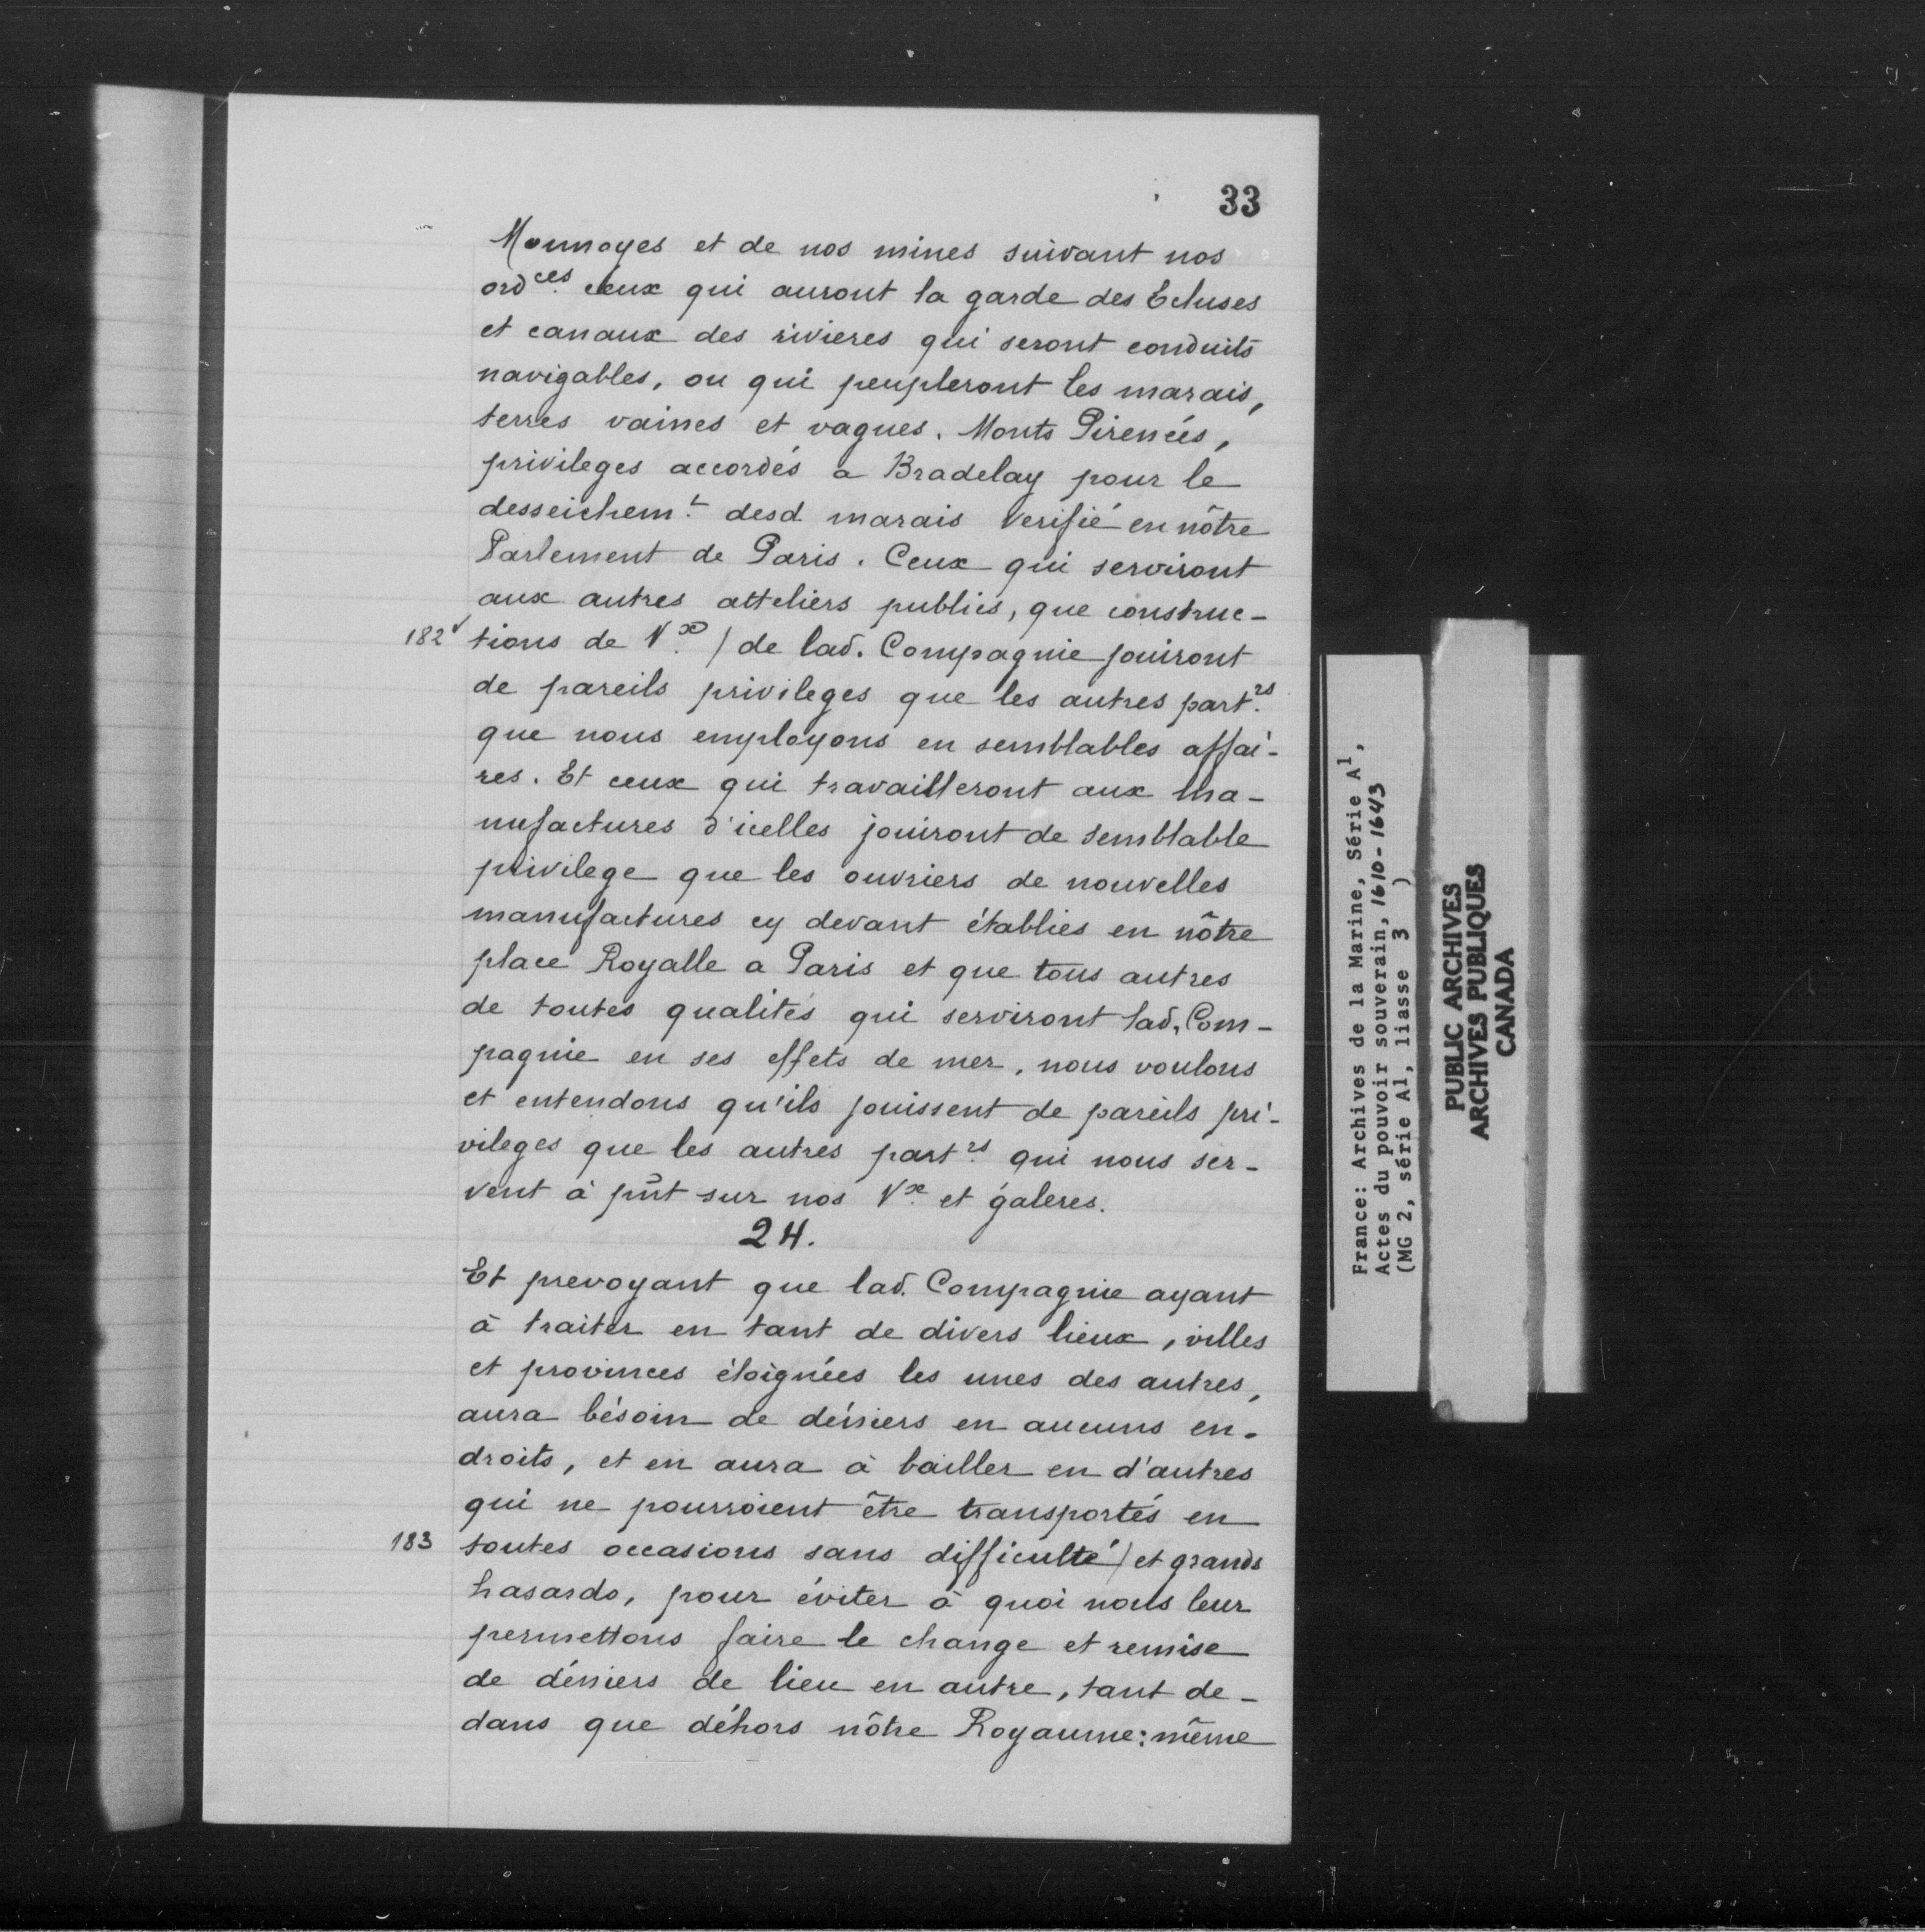 33
Monnoyes et de nos mines suivant nos
ord.ces ceux qui auront la garde des Ecluses
et canaux des rivieres qui seront conduits
navigables, ou qui peupleront les marais,
terres vaines et vagues. Monts Pirenées,
privileges accordés a Bradelay pour le
desseichem.t desd. marais verifié en nôtre
Parlement de Paris. Ceux qui serviront
aux autres atteliers publics, que construc-
182v tions de V.x / de lad. Compagnie jouiront
de pareils privileges que les autres part.rs
que nous employons en semblables affai-
res. Et ceux qui travailleront aux ma-
nufactures d'icelles jouiront de semblable
privilege que les ouvriers de nouvelles
manufactures cy devant établies en nôtre
place Royalle a Paris et que tous autres
de toutes qualités qui serviront lad. Com-
pagnie en ses effets de mer, nous voulons
et entendons qu'ils jouissent de pareils pri-
vileges que les autres part.rs qui nous ser-
vent à pñt sur nos V.x et galeres.
24.
Et prevoyant que lad. Compagnie ayant
à traiter en tant de divers lieux, villes
et provinces éloignées les unes des autres,
aura bésoin de déniers en aucuns en-
droits, et en aura à bailler en d'autres
qui ne pourroient être transportés en
183 toutes occasions sans difficulté / et grands
hasards, pour éviter à quoi nous leur
permettons faire le change et remise
de déniers de lieu en autre, tant de-
dans que déhors nôtre Royaume: même
France: Archives de la Marine, Série A1,
Actes du pouvoir souverain, 1610-1643
(MG 2, série A1, liasse 3 )
PUBLIC ARCHIVES
ARCHIVES PUBLIQUES
CANADA